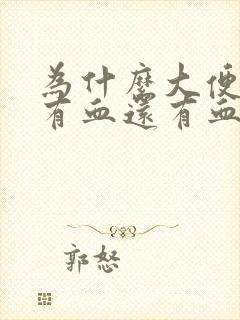 为什麽大便
有血還有血
郭怒